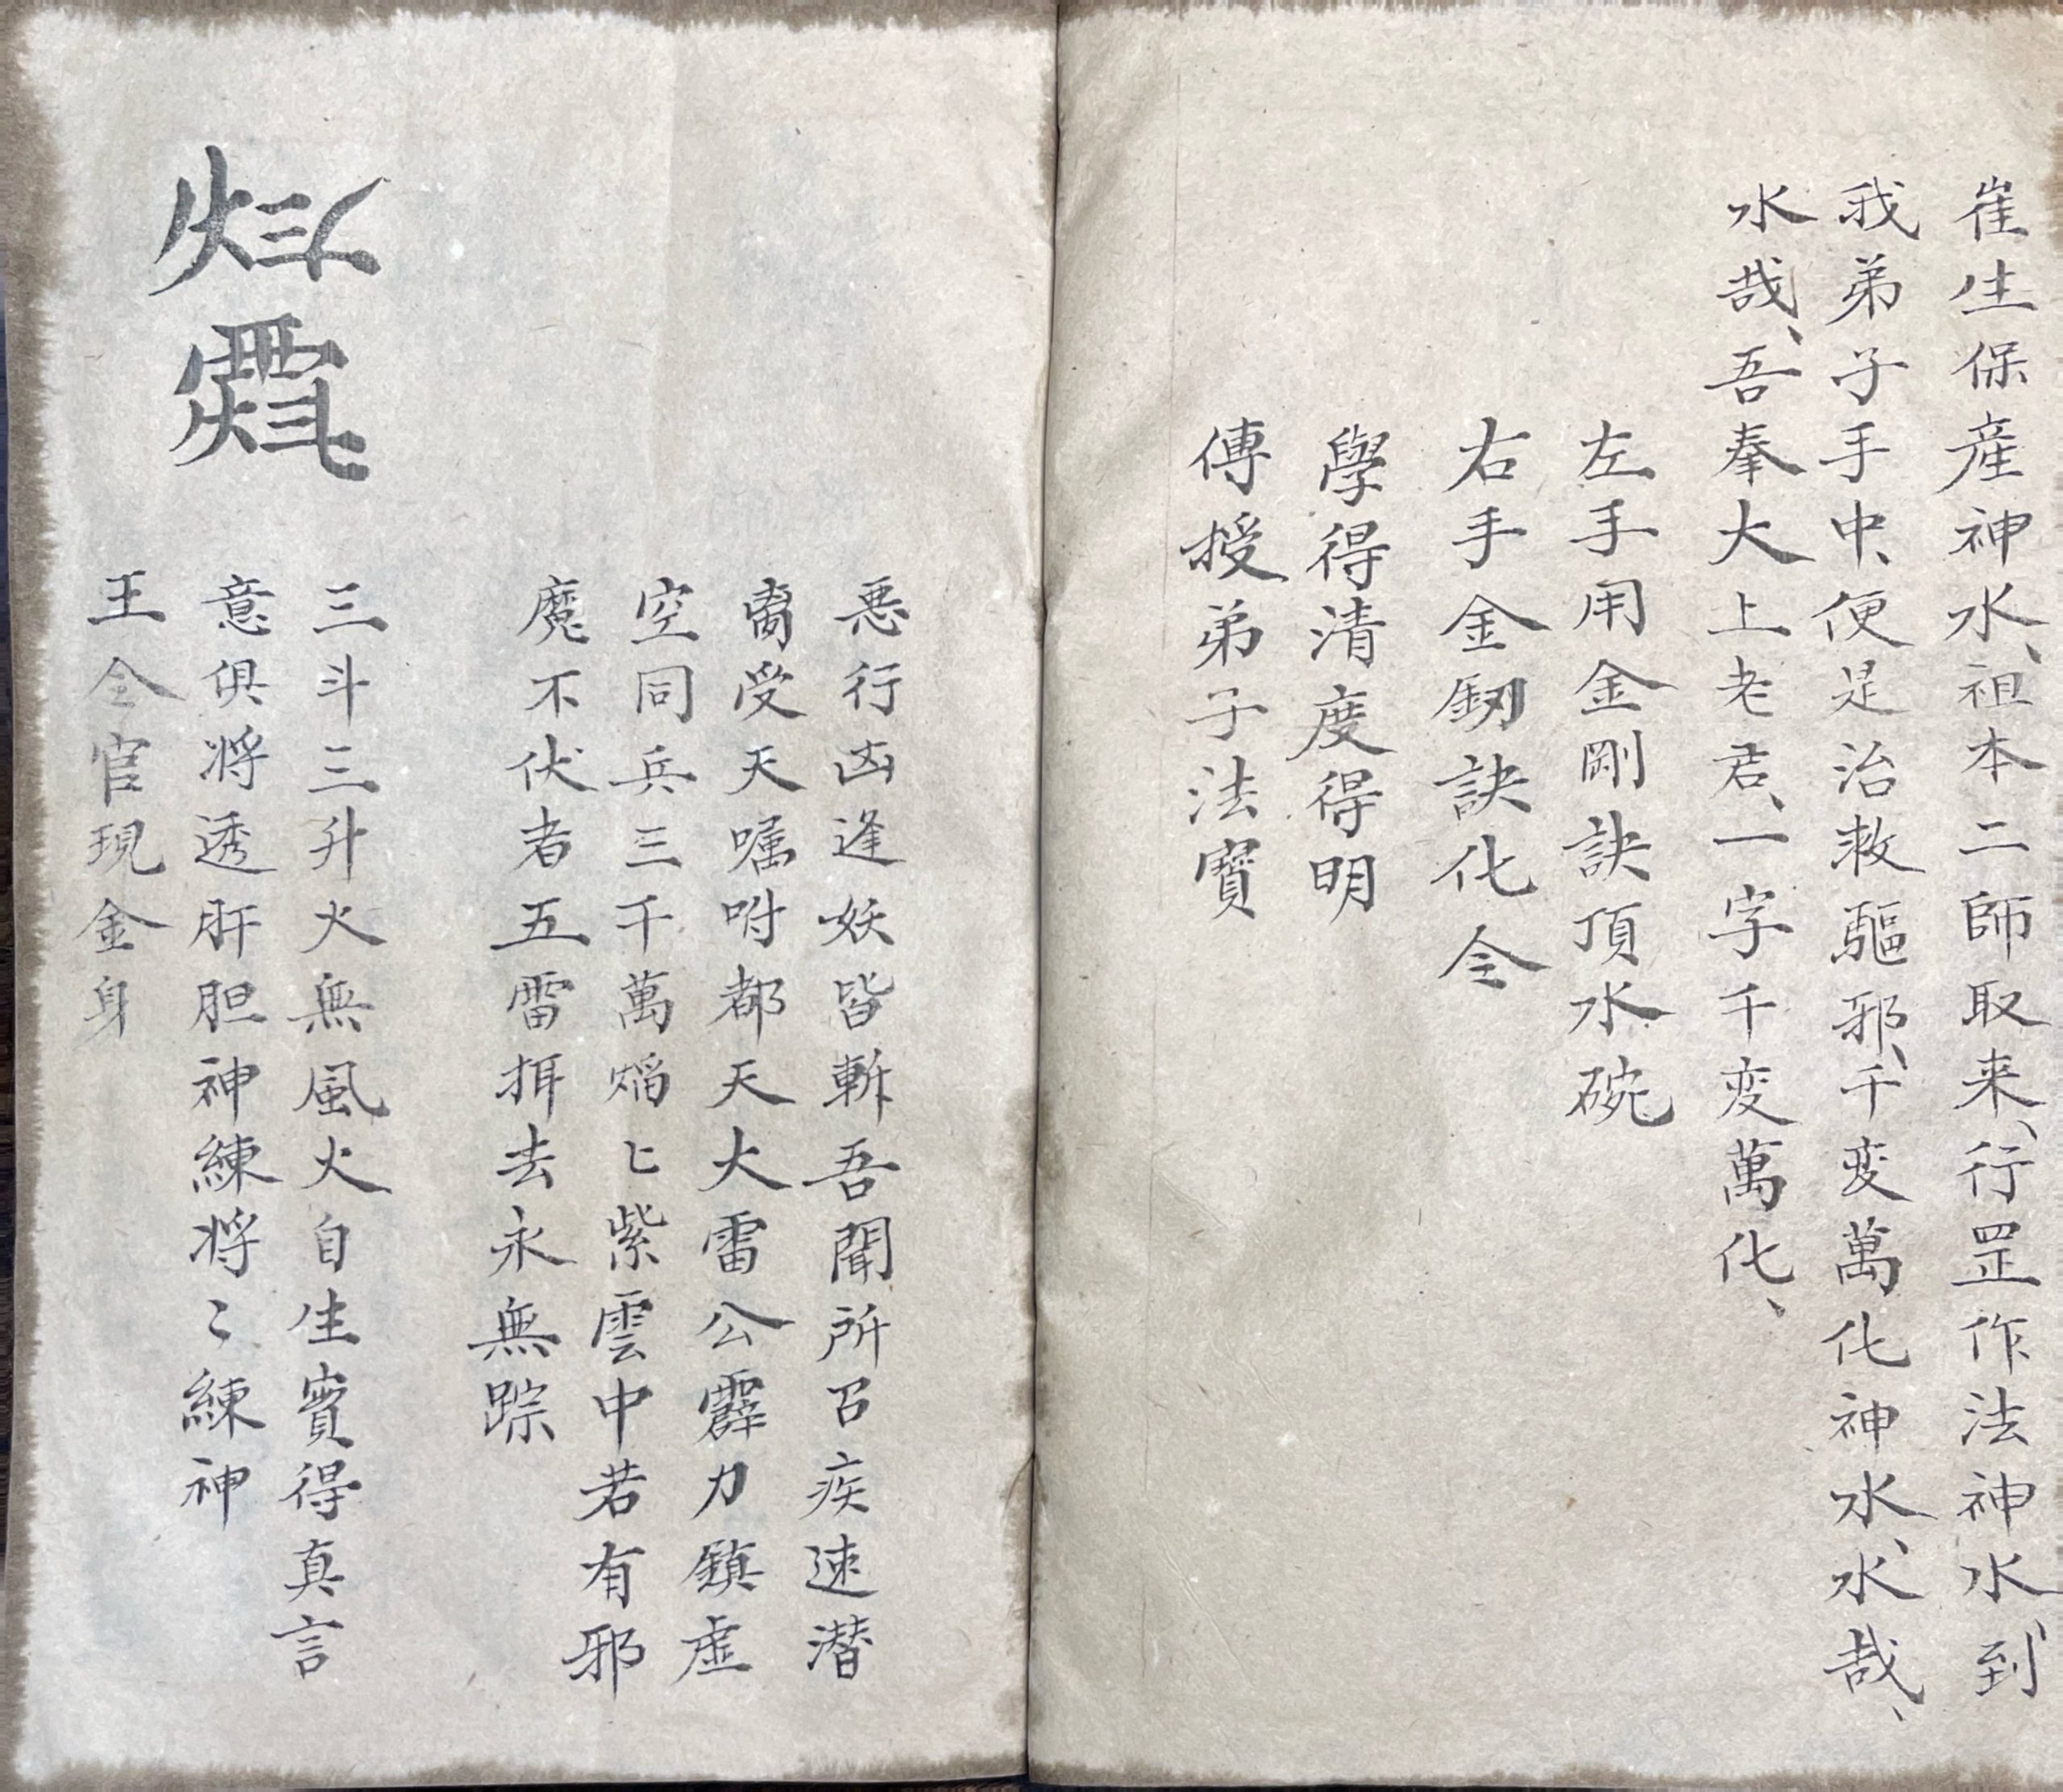 崔生保産神水、祖本二師取来、行罡作法神水、到
我弟子手中、便是治救驅邪、千変萬化神水、水哉、
水哉、吾奉大上老君、一字千変萬化、
左手用金剛訣頂水碗
右手金釼訣化仝
學得清度得明
傳授弟子法寳
悪行凶逢妖皆斬吾聞所召疾速潜
受天嘱咐都天大雷公霹力鎮虚
空同兵三千萬熖匕紫雲中若有邪
魔不伏者五雷揖去永無踪
三斗三升火無風火自生實得真言
意俱将透肝胆神練将〻練神
王仝官現金身